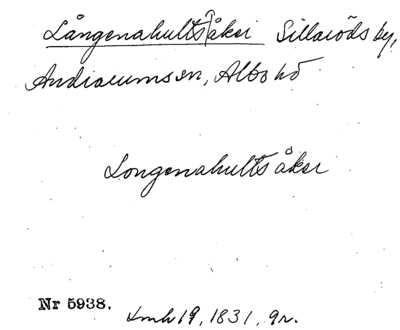 Långenahults åker Sillaröds by,
Andrarums sn, Albo hd
Longenahults åker
Nr 5938.
Lmh 19, 1831, gr.